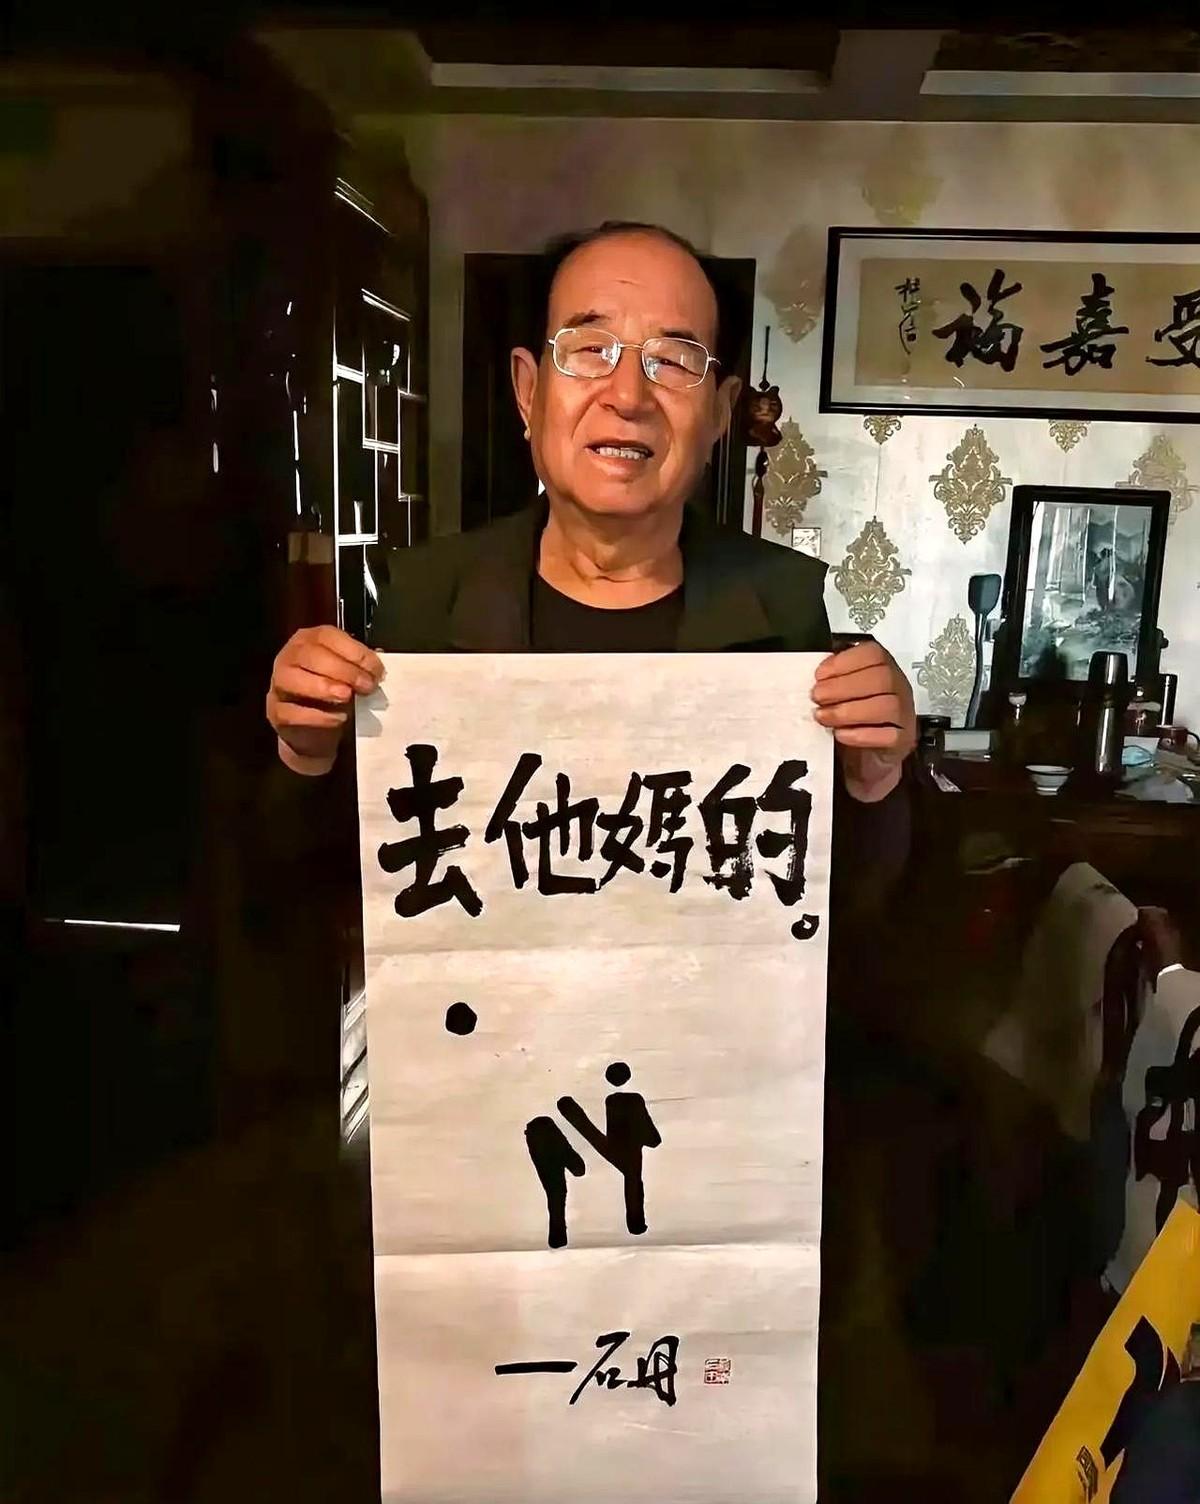 福嘉受
去他媽的。
一石冊